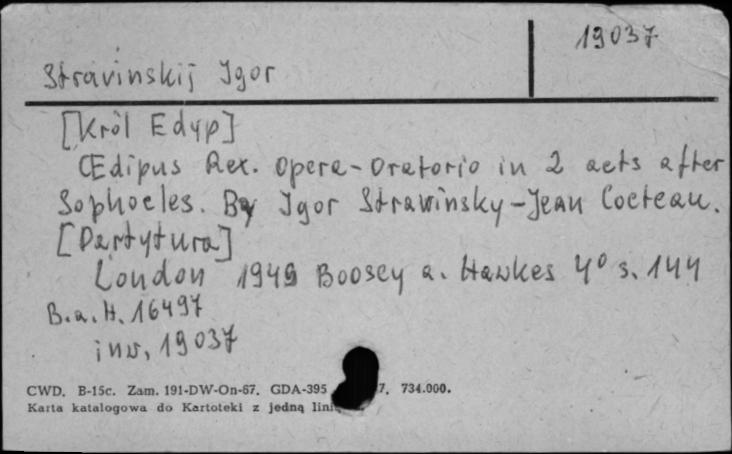 19037
Stravinskij Igor
[Król Edyp]
Œdipus Rex. Opera-Oratorio in 2 acts after
Sophocles. By Igor Strawinsky-Jean Cocteau.
[Partytura]
London 1949 Boosey a. Hawkes 4° s. 144
B.a.H. 16497
inw. 19037
CWD. B-15c. Zam. 191-DW-On-67. GDA-395 7. 734.000.
Karta katalogowa do Kartoteki z jedną